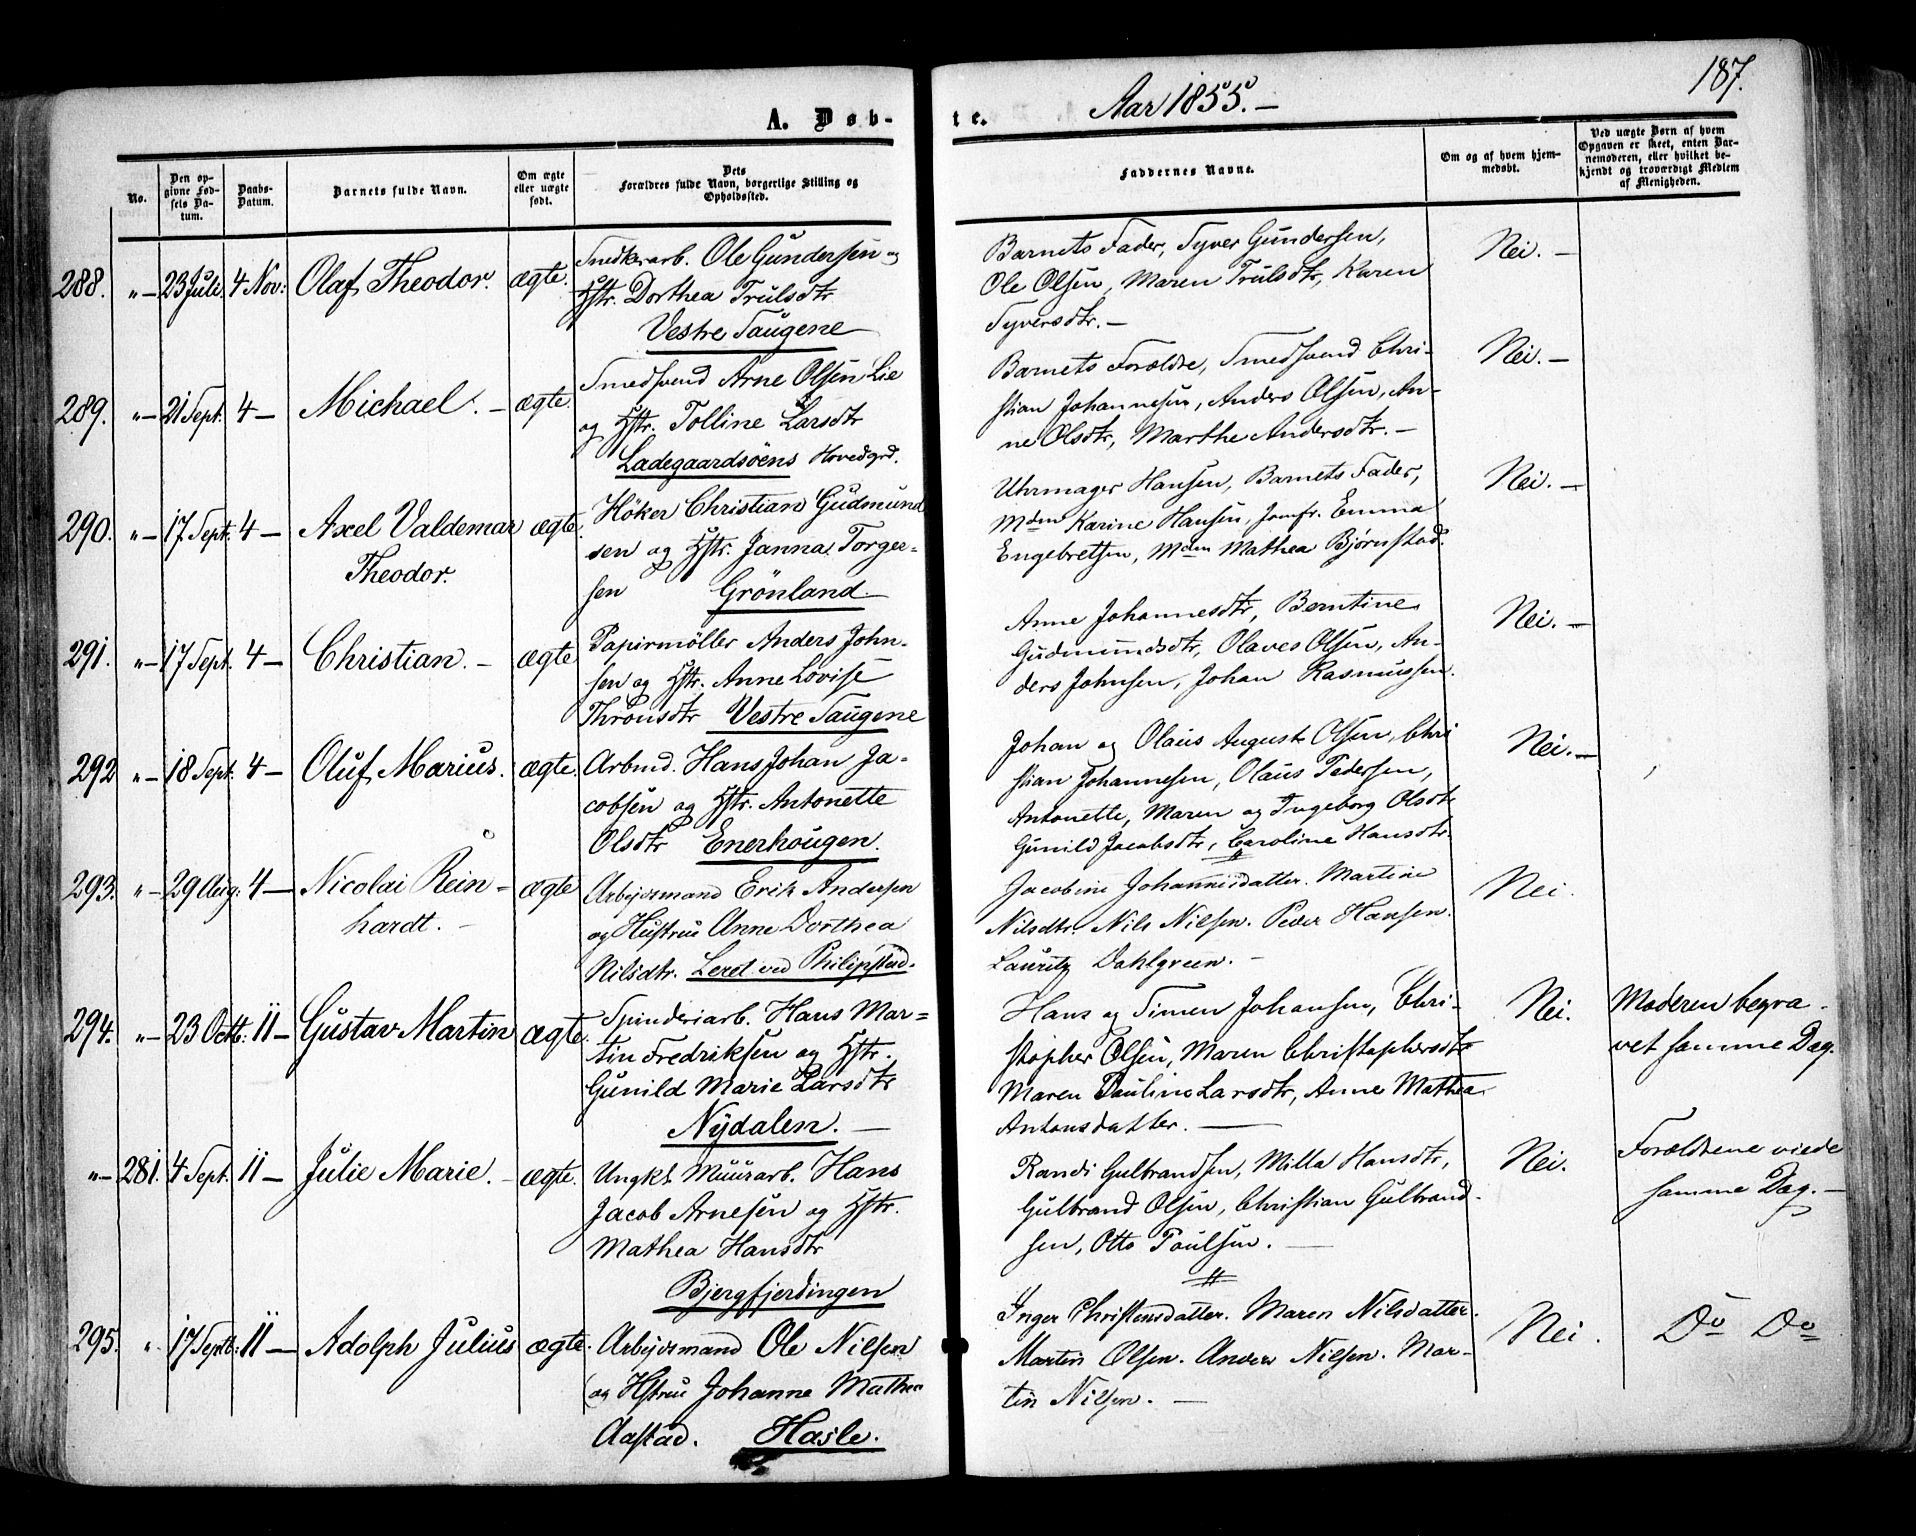 187.
Aar 1855. —
A. Døb-
te.
No.
Den op-
givne Fød-
sels Da-
tum.
Daabs-
Datum.
Barnets fulde Navn.
Om ægte
eller uægte
født.
Dets
Forældres fulde Navn, borgerlige Stilling og
Opholdssted.
Faddernes Navne.
Om og af hvem hjem-
medøbt.
Ved uægte Børn af hvem
Opgaven er skeet, enten Bar-
nemoderen, eller hvilket be-
kjendt og troværdigt Medlem
af Menigheden.
288. "— 23 Juli. 4 Nov: Olaf Theodor. ægte.
Snedkerarb. Ole Gundersen og
Hstr. Dorthea Trulsdtr
Vestre Saugene
Barnets Fader, Syver Gundersen,
Ole Olsen, Maren Trulsdtr, Karen
Syversdtr. —
Nei. —
289. "— 21 Sept. 4 — Michael. — ægte.
Smedsvend Arne Olsen Lie
og Hstr. Tolline Larsdtr
Ladegaardsöens Hovedgrd.
Barnets Forældre, Smedsvend Chri-
stian Johannesen, Anders Olsen, An-
ne Olsdtr, Marthe Andersdtr. —
Nei. —
290. "— 17 Sept. 4 — Axel Valdemar
Theodor. ægte.
Höker Christian Gudmund
sen og Hstr. Janna Torger-
sen Grönland
Uhrmager Hansen, Barnets Fader,
Mdm Karine Hansen, Jomfr. Emma
Engebretsen, Mdm Mathea Bjørnstad.
Nei. —
291. "— 17 Sept. 4 — Christian. — ægte
Papirmöller Anders John-
sen og Hstr. Anne Lovise
Thronsdtr Vestre Saugene
Anne Johannesdtr, Berntine
Gudmundsdtr, Olaves Olsen, An-
ders Johnsen, Johan Rasmussen.
Nei. —
292 "— 18 Sept. 4 — Oluf Marius. ægte.
Arbmd. Hans Johan Ja-
cobsen og Hstr. Antonette
Olsdtr Enerhougen.
Johan og Olaus August Olsen, Chri
stian Johannesen, Olaus Pedersen,
Antonette, Maren og Ingeborg Olsdtr
Gunild Jacobsdtr, Caroline Hansdtr.
Nei. —
293. "— 29 Aug: 4 — Nicolai Rein-
hardt. — ægte
Arbeidsmand Erik Andersen
og Hustrue Anne Dorthea
Nilsdtr. Leret ved Philipstad.
Jacobine Johannisdatter. Martine
Nilsdtr. Nils Nilsen. Peder Hansen.
Lauritz Dahlgreen. —
Nei.
294. "— 23 Octb: 11 — Gustav Martin ægte.
Spinderiarb. Hans Mar-
tin Fredriksen og Hstr.
Gunild Marie Larsdtr
Nydalen. —
Hans og Simen Johansen, Chri-
stopher Olsen, Maren Christophersdtr
Maren Pauline Larsdtr, Anne Mathea
Antonsdatter. —
Nei.
Moderen begra-
vet samme Dag.
"— 281. 4 Sept. 11 — Julie Marie. — ægte.
Ungkl. Muurarb. Hans
Jacob Arnesen og Hstr.
Mathea Hansdtr
Bjergfjerdingen
Randi Gulbrandsen, Milla Hansdtr,
Gulbrand Olsen, Christian Gulbrand-
sen, Otto Poulsen. —
Nei.
Forældrene viede
samme Dag. —
295. " 17 Septb: 11 — Adolph Julius ægte.
Arbeidsmand Ole Nilsen
og Hstrue Johanne Mathea
Aastad. Hasle.
Inger Christensdatter. Maren Nilsdatter.
Martin Olsen. Anders Nilsen. Mar-
tin Nilsen. —
Nei.
Do Do